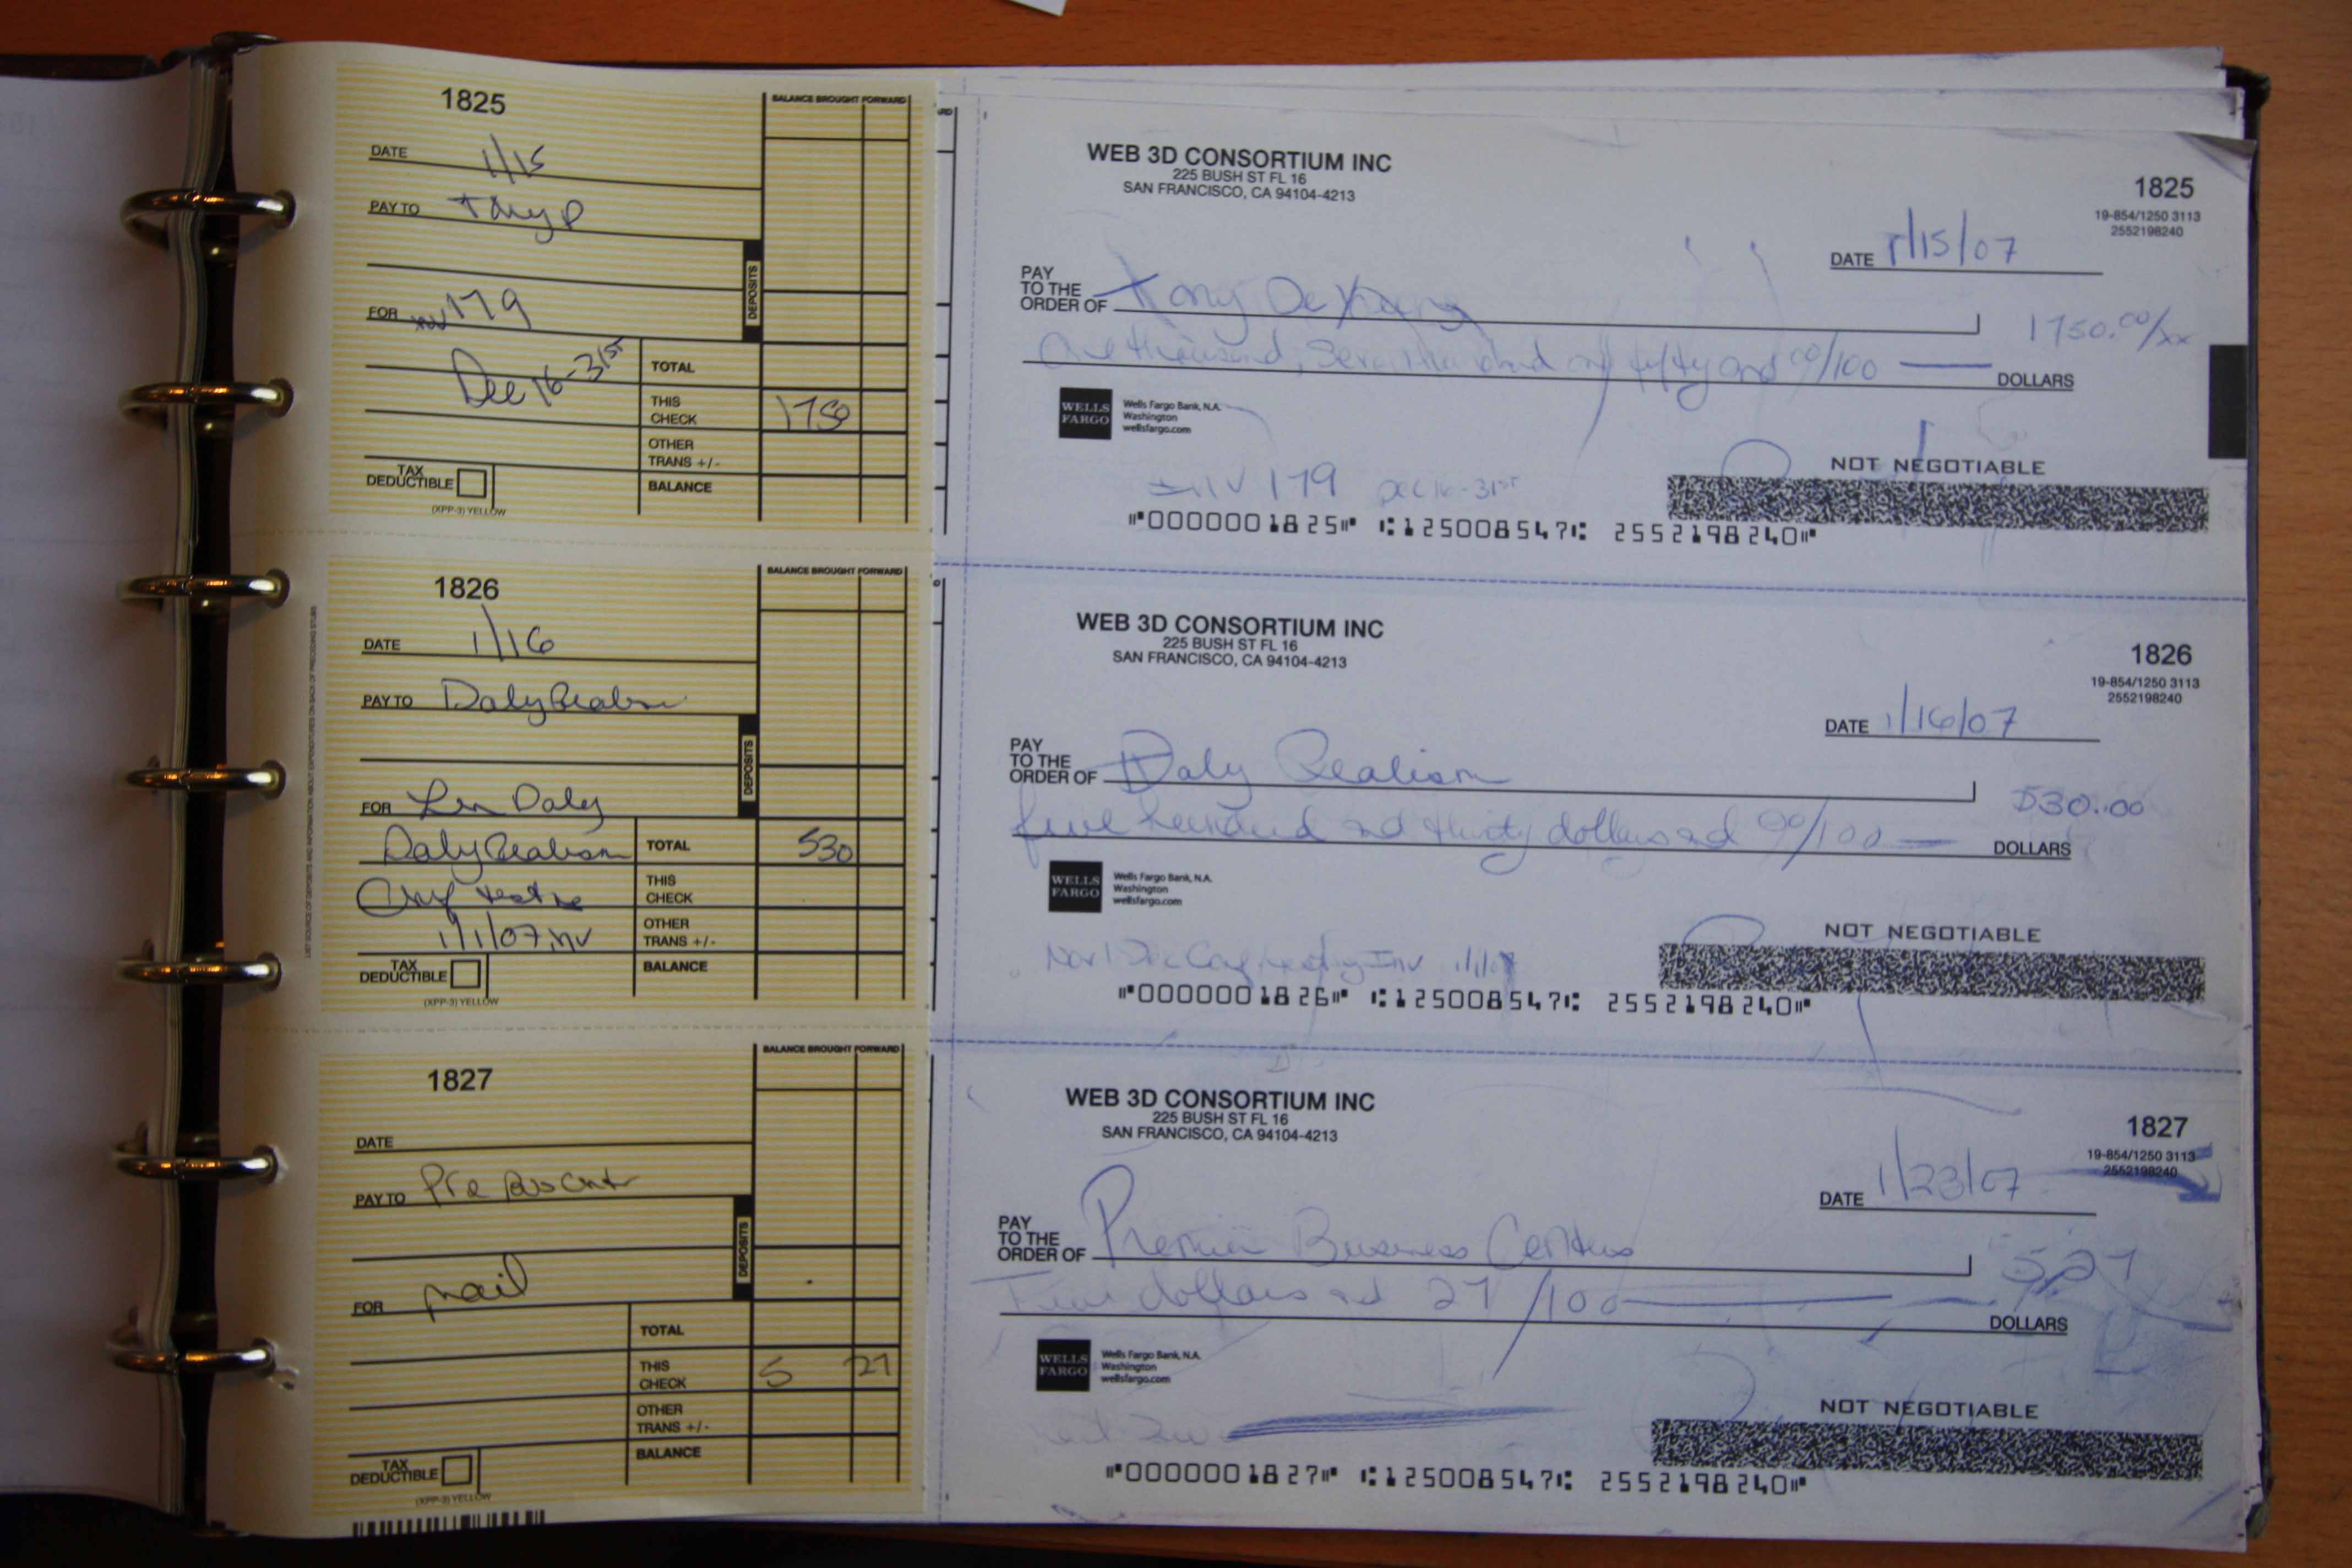 1825
BALANCE BROUGHT FORWARD
DATE 1/15
PAY TO Tony D
DEPOSITS
FOR inv 179
Dec 16-31st
TOTAL
THIS CHECK 1750
OTHER TRANS +/-
BALANCE
TAX DEDUCTIBLE
(XPP-3) YELLOW
WEB 3D CONSORTIUM INC
225 BUSH ST FL 16
SAN FRANCISCO, CA 94104-4213
1825
19-854/1250 3113
2552198240
DATE 1/15/07
PAY TO THE ORDER OF Tony DeYoung
1750.00/xx
One thousand, seven hundred and fifty and 00/100
DOLLARS
WELLS FARGO
Wells Fargo Bank, N.A.
Washington
wellsfargo.com
NOT NEGOTIABLE
INV 179 Dec 16-31st
⑈0000001825⑈ ⑆125008547⑆ 2552198240⑈
1826
BALANCE BROUGHT FORWARD
DATE 1/16
PAY TO Daly Realism
DEPOSITS
FOR Len Daly
Daly Realism
TOTAL 530
THIS CHECK
1/1/07 inv
OTHER TRANS +/-
BALANCE
TAX DEDUCTIBLE
(XPP-3) YELLOW
WEB 3D CONSORTIUM INC
225 BUSH ST FL 16
SAN FRANCISCO, CA 94104-4213
1826
19-854/1250 3113
2552198240
DATE 1/16/07
PAY TO THE ORDER OF Daly Realism
530.00
five hundred and thirty dollars and 00/100
DOLLARS
WELLS FARGO
Wells Fargo Bank, N.A.
Washington
wellsfargo.com
NOT NEGOTIABLE
Inv 1/1/07
⑈0000001826⑈ ⑆125008547⑆ 2552198240⑈
1827
BALANCE BROUGHT FORWARD
DATE
PAY TO Pre Bus Cntr
DEPOSITS
FOR mail
TOTAL
THIS CHECK 5 27
OTHER TRANS +/-
BALANCE
TAX DEDUCTIBLE
(XPP-3) YELLOW
WEB 3D CONSORTIUM INC
225 BUSH ST FL 16
SAN FRANCISCO, CA 94104-4213
1827
19-854/1250 3113
2552198240
DATE 1/23/07
PAY TO THE ORDER OF Premier Business Centers
5.27
Five dollars and 27/100
DOLLARS
WELLS FARGO
Wells Fargo Bank, N.A.
Washington
wellsfargo.com
NOT NEGOTIABLE
⑈0000001827⑈ ⑆125008547⑆ 2552198240⑈